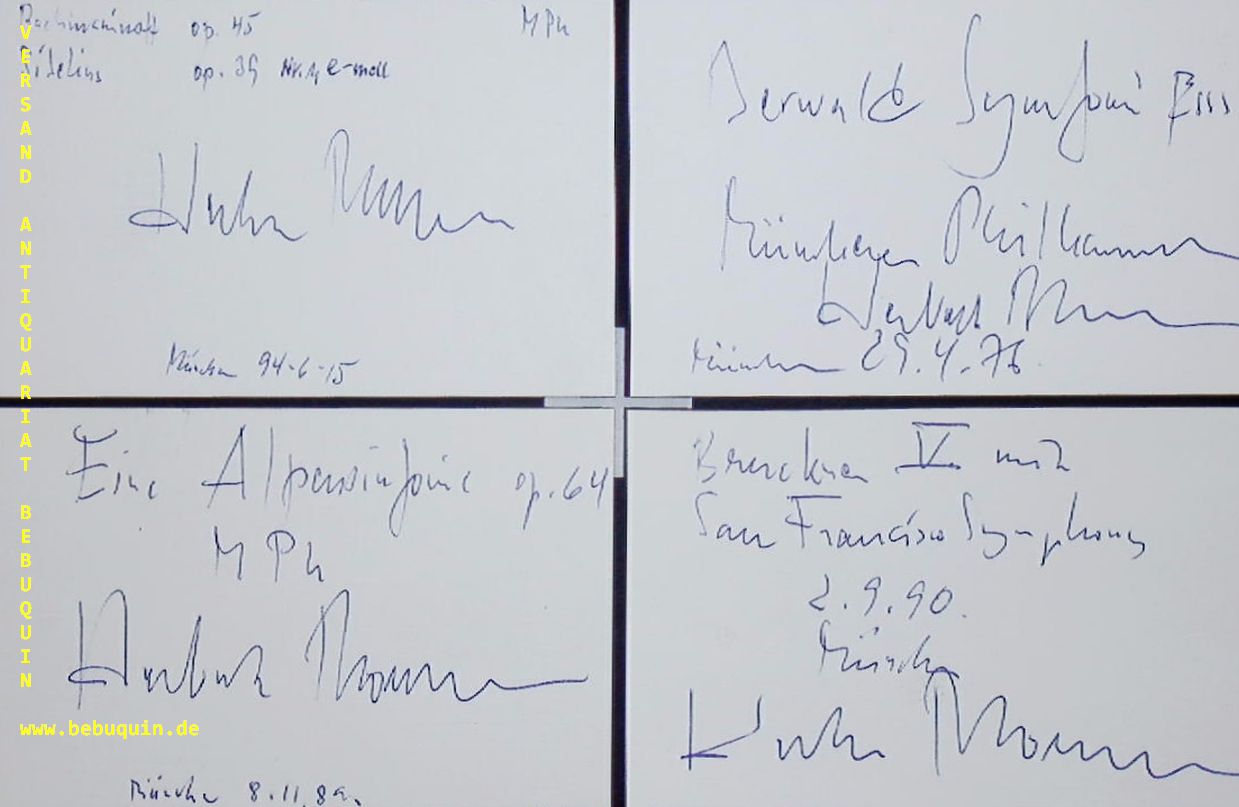 Rachmaninoff op. 45 MPh
Sibelius op. 39 Nr. 1, e-moll
Herbert Blomstedt
München 94-6-15
Berwald Symfoni Ess
Münchener Philharmon
Herbert Blomstedt
München 29.4.76
Eine Alpensinfonie op. 64
MPh
Herbert Blomstedt
München 8.11.89.
Bruckner V. mit
San Francisco Symphony
2.9.90.
München
Herbert Blomstedt
VERSAND ANTIQUARIAT BEBUQUIN
www.bebuquin.de